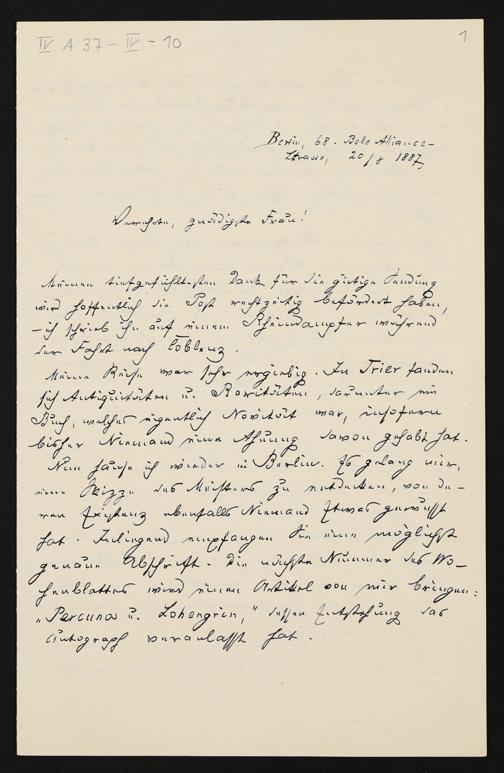 IV A 37 – IV – 10
1
Berlin, 68. Belle Alliance-
Strasse, 20/8 1887.
Verehrte, gnädigste Frau!
Meinen tiefgefühltesten Dank für die gütige Sendung
wird hoffentlich die Post rechtzeitig befördert haben,
– ich schrieb ihn auf einem Rheindampfer während
der Fahrt nach Coblenz.
Meine Reise war sehr ergiebig. In Trier fanden
sich Antiquitäten u. Raritäten, darunter ein
Buch, welches eigentlich Novität war, insofern
bisher Niemand eine Ahnung davon gehabt hat.
Nun hause ich wieder in Berlin. Es gelang mir,
eine Skizze des Meisters zu entdecken, von de-
ren Existenz ebenfalls Niemand Etwas gewusst
hat. Inliegend empfangen Sie eine möglichst
genaue Abschrift. Die nächste Nummer des Wo-
chenblattes wird einen Artikel von mir bringen:
„Percuna u. Lohengrin," dessen Entstehung das
Autograph veranlasst hat.